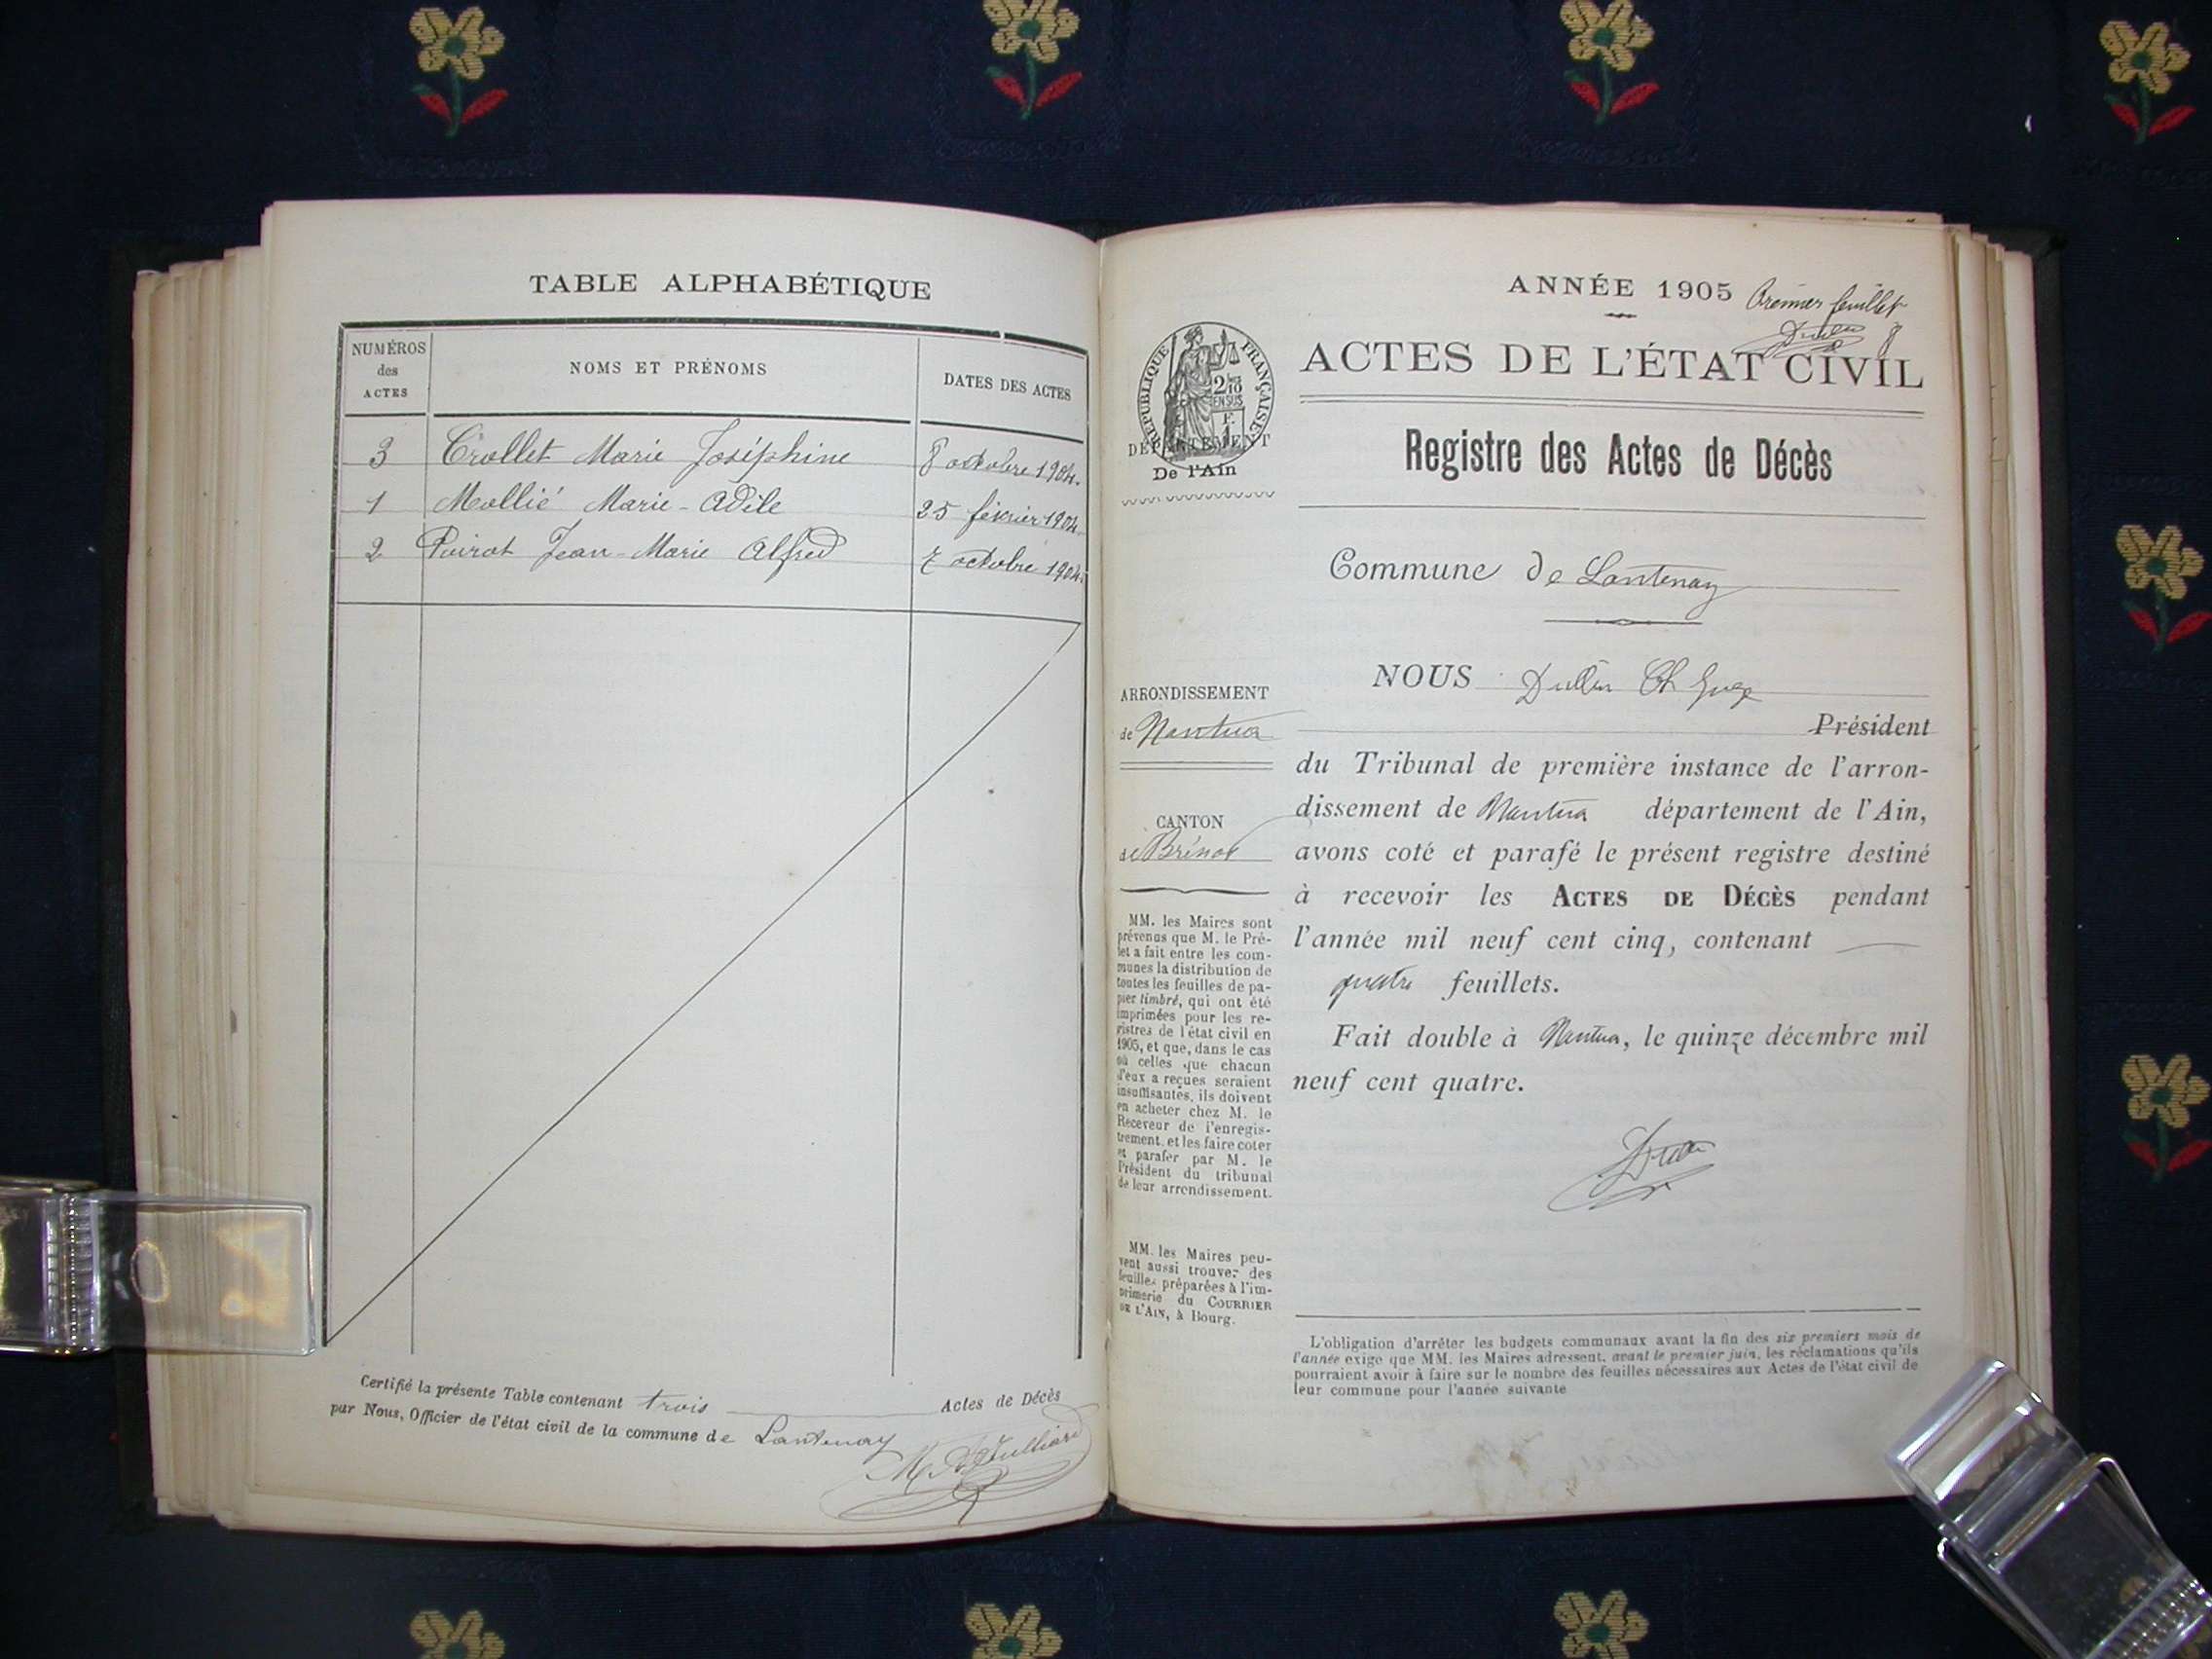 TABLE ALPHABÉTIQUE
NUMÉROS des ACTES
NOMS ET PRÉNOMS
DATES DES ACTES
3 Crollet Marie Joséphine 8 octobre 1904.
1 Mollié Marie-Adèle 25 février 1904.
2 Poirot Jean-Marie Alfred 7 octobre 1904.
Certifié la présente Table contenant trois Actes de Décès
par Nous, Officier de l'état civil de la commune de Lantenay
ANNÉE 1905 Premier feuillet
ACTES DE L'ÉTAT CIVIL
RÉPUBLIQUE FRANÇAISE
DÉPARTEMENT
De l'Ain
Registre des Actes de Décès
Commune de Lantenay
ARRONDISSEMENT
de Nantua
CANTON
de Brénod
MM. les Maires sont
prévenus que M. le Pré-
fet a fait entre les com-
munes la distribution de
toutes les feuilles de pa-
pier timbré, qui ont été
imprimées pour les re-
gistres de l'état civil en
1905, et que, dans le cas
où celles que chacun
d'eux a reçues seraient
insuffisantes, ils doivent
en acheter chez M. le
Receveur de l'enregis-
trement, et les faire coter
et parafer par M. le
Président du tribunal
de leur arrondissement.
MM. les Maires peu-
vent aussi trouver des
feuilles préparées à l'im-
primerie du COURRIER
DE L'AIN, à Bourg.
NOUS Dullin
Président
du Tribunal de première instance de l'arron-
dissement de Nantua département de l'Ain,
avons coté et parafé le présent registre destiné
à recevoir les ACTES DE DÉCÈS pendant
l'année mil neuf cent cinq, contenant
quatre feuillets.
Fait double à Nantua, le quinze décembre mil
neuf cent quatre.
L'obligation d'arrêter les budgets communaux avant la fin des six premiers mois de
l'année exige que MM. les Maires adressent, avant le premier juin, les réclamations qu'ils
pourraient avoir à faire sur le nombre des feuilles nécessaires aux Actes de l'état civil de
leur commune pour l'année suivante